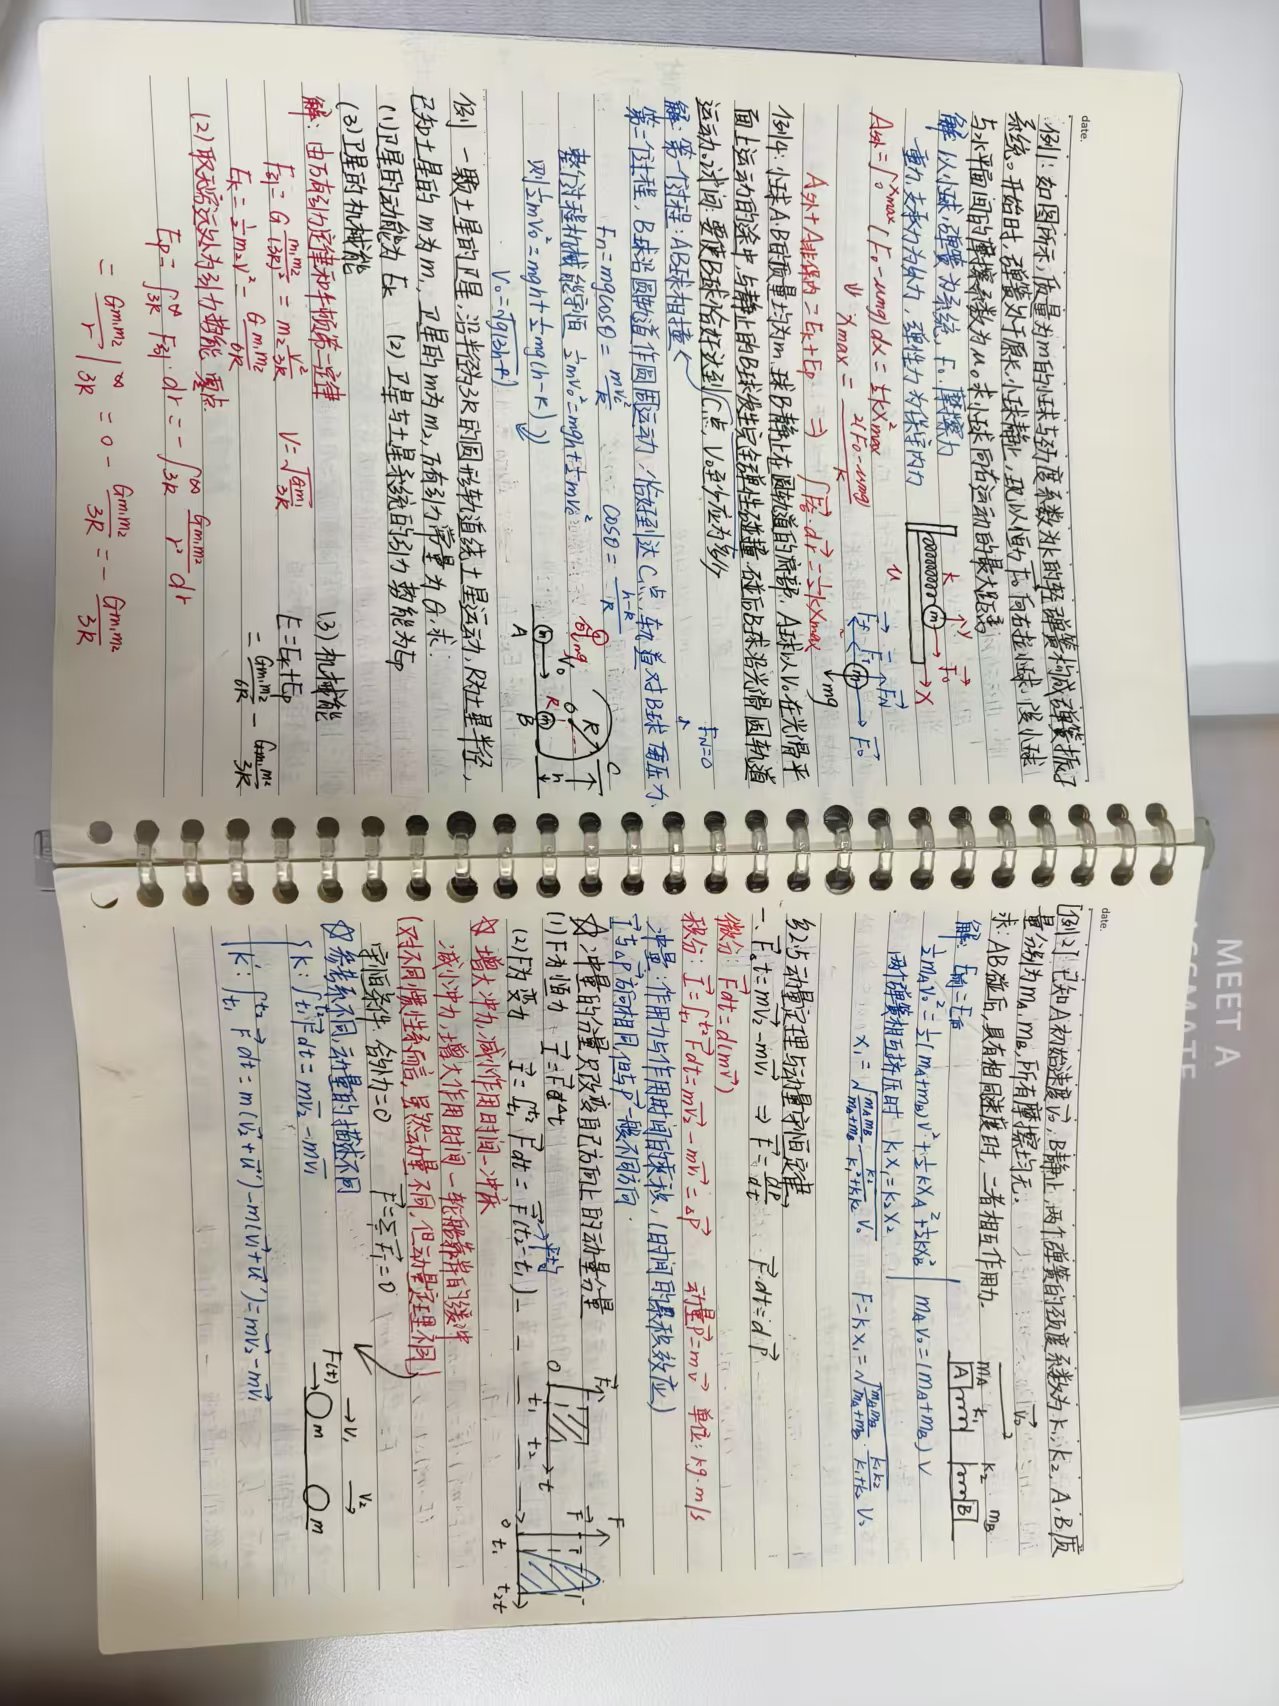 date.
例1：如图所示，质量为m的小球与劲度系数为k的轻弹簧构成弹簧振子
系统。开始时，弹簧处于原长，小球静止，现以恒力F₀向右拉小球，设小球
与水平面间的摩擦系数为μ。求小球向右运动的最大距离
解 以小球，弹簧为系统，F₀. 摩擦力
重力，支承力为外力，弹性力为保守内力
A外=∫₀^xmax (F₀-μmg)dx=½kx²max
xmax = 2(F₀-μmg)/k
A外+A非保内=Ek+Ep
k
y
F₀
x
m
u
FN
F₀
mg
例4：小球A.B的质量均为m.球B静止在圆轨道的底部，A球以V₀在光滑平
面上运动的途中，与静止的B球发生完全弹性碰撞，碰后B球沿光滑圆轨道
运动。试问：要使B球恰好达到C点，V₀至少应为多少
解：第一个过程：AB球相撞
第二个过程，B球沿圆轨道作圆周运动，恰好到达C点，轨道对B球无压力，
FN=0
Fn=mgcosθ=mVc²/R cosθ=(h-R)/R
整个过程机械能守恒 ½mV₀²=mgh+½mVc²
则½mV₀²=mgh+½mg(h-R)
V₀=√g(3h-R)
A
B
V₀
O
R
h
C
例 一颗土星的卫星，沿半径为3R的圆形轨道绕土星运动，R为土星半径，
已知土星的m为m₁，卫星的m为m₂，万有引力常量为G，求：
(1)卫星的动能为Ek (2)卫星与土星系统的引力势能为Ep
(3)卫星的机械能
解：由万有引力定律和牛顿第二定律
F引=G m₁m₂/(3R)²=m₂ v²/3R V=√(Gm₁/3R)
Ek=½m₂v²=Gm₁m₂/6R
(2)取无穷远处为引力势能零点.
Ep=∫3R^∞ F引·dr=-∫3R^∞ Gm₁m₂/r² dr
=Gm₁m₂/r |3R^∞ =0-Gm₁m₂/3R=-Gm₁m₂/3R
(3)机械能
E=Ek+Ep
=Gm₁m₂/6R-Gm₁m₂/3R
date.
[例2] 已知A初始速度V₀，B静止，两个弹簧的劲度系数为k₁，k₂，A，B质
量分别为mA，mB，所有摩擦均无.
求：AB碰后，具有相同速度时，二者相互作用力.
V₀
mA k₁ k₂ mB
A B
½mAV₀²=½(mA+mB)V²+½kxA²+½kxB² mAV₀=(mA+mB)V
两弹簧相互挤压时 k₁x₁=k₂x₂
§2.5动量定理与动量守恒定律
一. F△t=mV₂-mV₁ ⇒ F=dP/dt F·dt=dP
微分：Fdt=d(mv)
积分：I=∫t₁^t₂ Fdt=mV₂-mV₁=△P 动量P=mv 单位：kg·m/s
冲量：作用力与作用时间的乘积，(时间的累积效应)
I与△P方向相同，但与P一般不同方向.
☆冲量的分量只改变自己方向上的动量分量
(1)F为恒力 I=F△t
(2)F为变力 I=∫t₁^t₂ Fdt=F(t₂-t₁)
平均
F
O t₁ t₂ t
F
0 t₁ t₂ t
☆增大冲力，减小作用时间—冲床
减小冲力，增大作用时间—轮船靠岸的缓冲
(对不同惯性系而言，虽然动量不同，但动量定理不同)
守恒条件，合外力=0 F=ΣFi=0
☆参考系不同，动量的描述不同
k：∫t₁^t₂ Fdt=mV₂-mV₁
k′：∫t₁^t₂ Fdt=m(V₂+u′)-m(V₁+u′)=mV₂-mV₁
F(t)
V₁ V₂
m m
MEET A